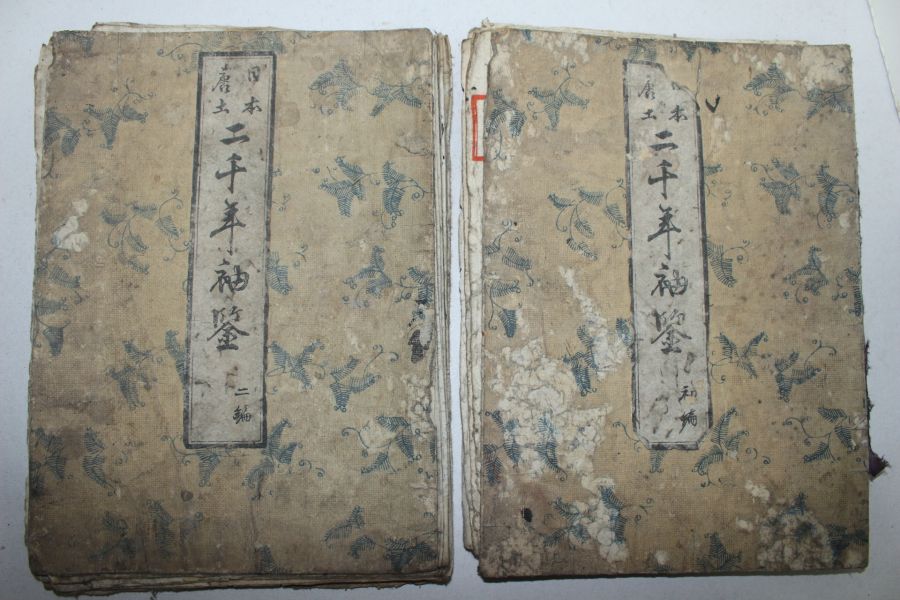 本
唐土
二千年袖鑒
初編
日本
唐土
二千年袖鑒
二編